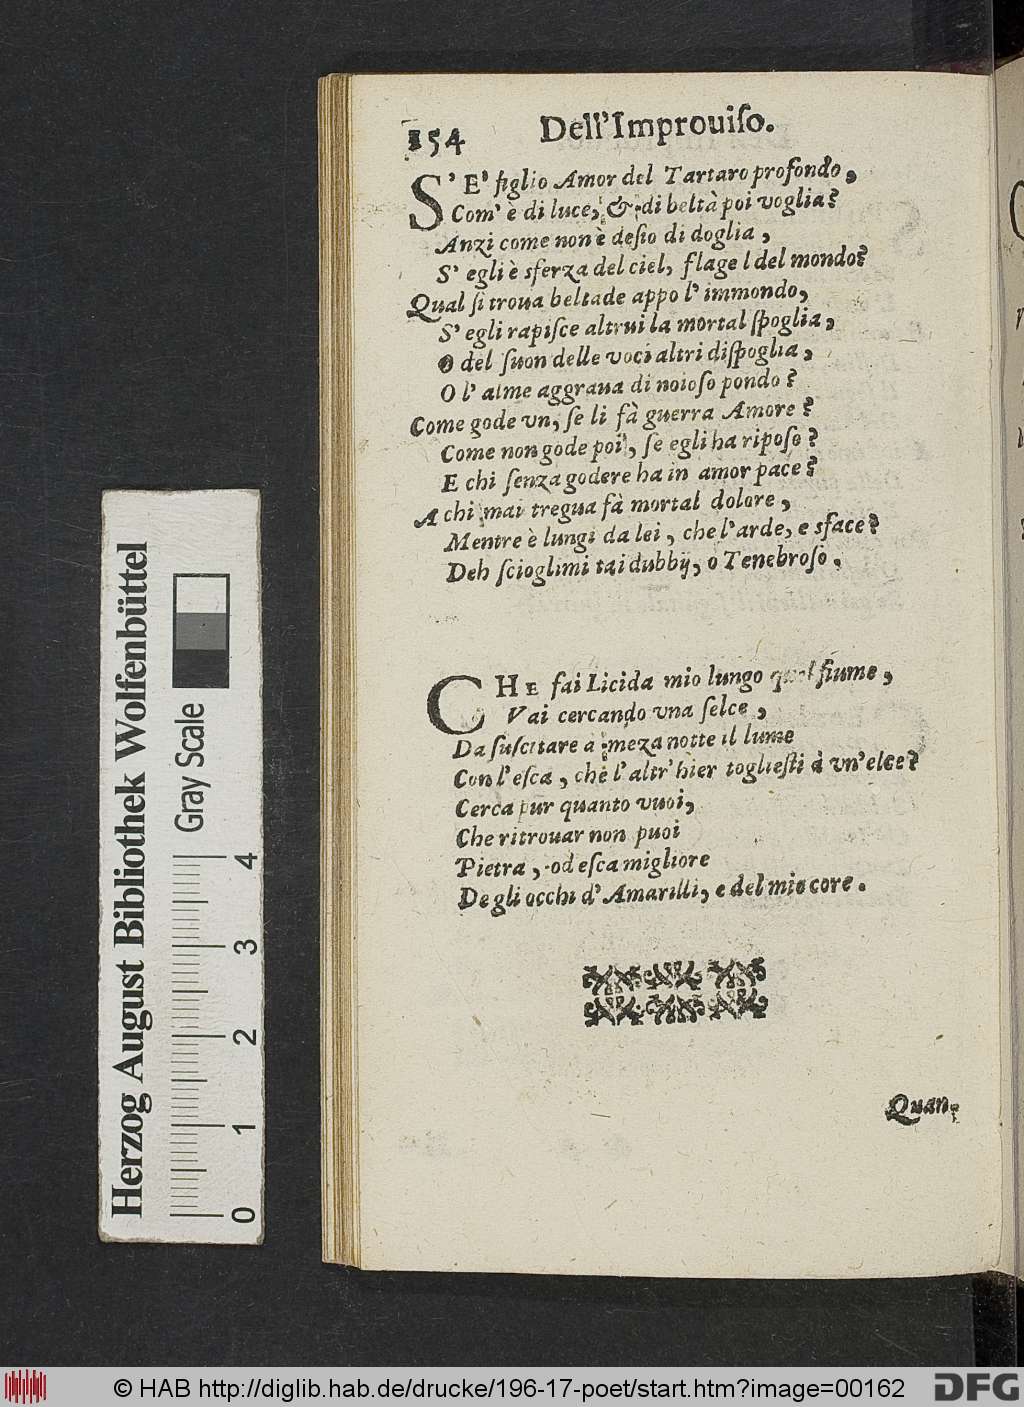 154 Dell'Improuiſo.
S'E' figlio Amor del Tartaro profondo,
Com' è di luce, & di beltà poi voglia?
Anzi come non è deſio di doglia,
S' egli è sferza del ciel, flagel del mondo?
Qual ſi troua beltade appo l' immondo,
S' egli rapiſce altrui la mortal ſpoglia,
O del ſuon delle voci altri diſpoglia,
O l' alme aggraua di noioſo pondo?
Come gode vn, ſe li fà guerra Amore?
Come non gode poi, ſe egli ha ripoſo?
E chi ſenza godere ha in amor pace?
A chi mai tregua fà mortal dolore,
Mentre è lungi da lei, che l'arde, e sface?
Deh ſcioglimi tai dubbij, o Tenebroſo.
CHE fai Licida mio lungo quel fiume,
Vai cercando vna ſelce,
Da ſuſcitare a meza notte il lume
Con l'eſca, che l'altr'hier toglieſti à vn'elce?
Cerca pur quanto vuoi,
Che ritrouar non puoi
Pietra, od eſca migliore
Degli occhi d' Amarilli, e del mio core.
Quan-
Herzog August Bibliothek Wolfenbüttel
Gray Scale
0 1 2 3 4
© HAB http://diglib.hab.de/drucke/196-17-poet/start.htm?image=00162
DFG